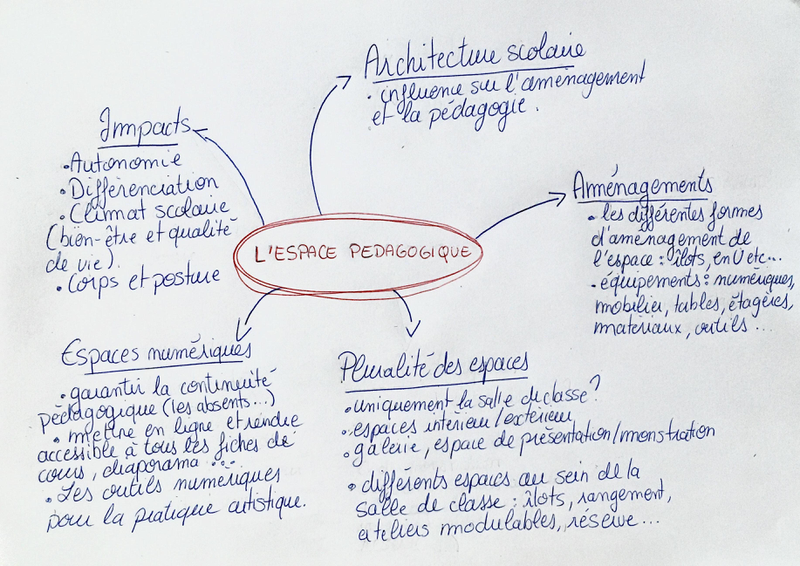 Architecture scolaire
• influence sur l'aménagement
et la pédagogie.
Impacts
• Autonomie
• Différenciation
• Climat scolaire
(bien-être et qualité
de vie).
• Corps et posture
Aménagements
• les différentes formes
d'aménagement de
l'espace : îlots, en U etc...
• équipements : numériques,
mobilier, tables, étagères,
matériaux, outils ...
L'ESPACE PEDAGOGIQUE
Espaces numériques
• garantir la continuité
pédagogique (les absents...)
• mettre en ligne et rendre
accessible à tous les fiches de
cours, diaporama ...
• Les outils numériques
pour la pratique artistique.
Pluralité des espaces
• uniquement la salle de classe ?
• espaces intérieur/extérieur
• galerie, espace de présentation/monstration
• différents espaces au sein de la
salle de classe : îlots, rangement,
ateliers modulables, réserve ...